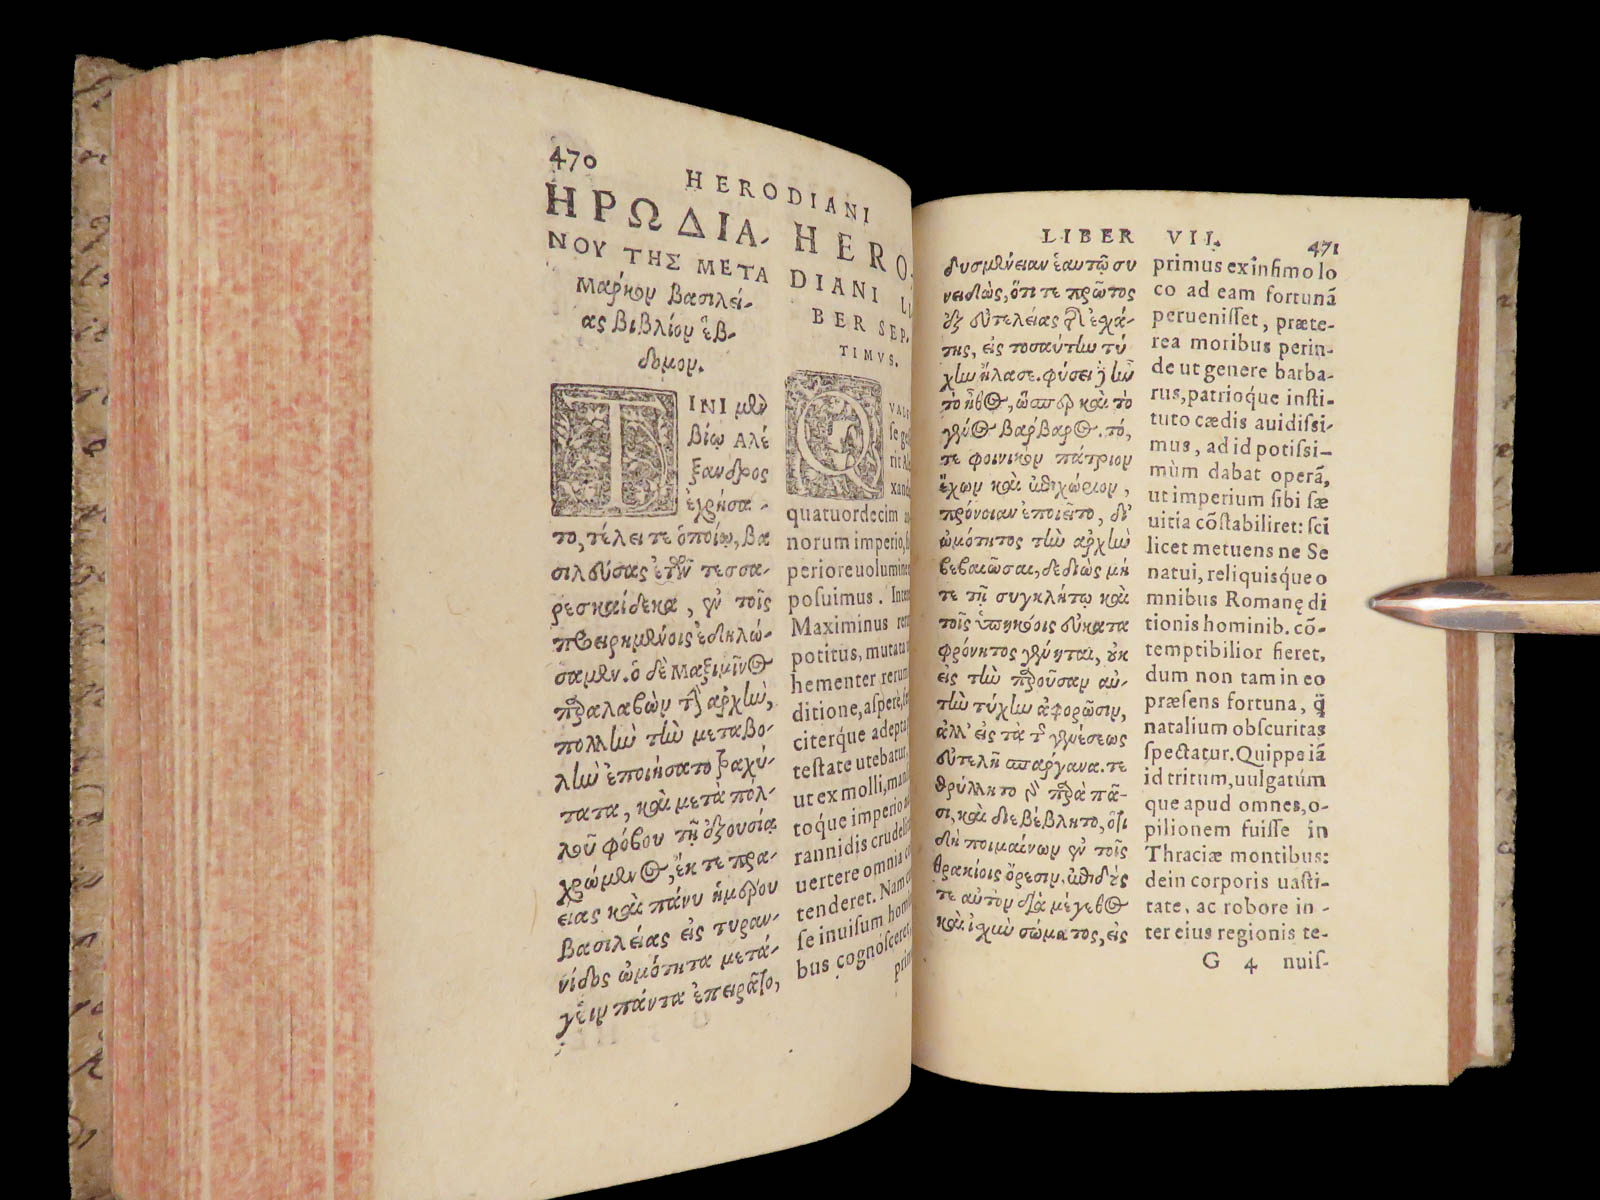 470
HERODIANI
ΗΡΩΔΙΑ-
ΝΟΥ ΤΗΣ ΜΕΤΑ
Μάρκον βασιλεί-
ας βιβλίον ἕβ-
δομον.
ΤΙΝΙ μὲν
βίῳ Αλέ
ξανδρος
ἐχρήσα-
το, τέλει τε ὁποίῳ, βα
σιλεύσας ἐτῶν τεσσα-
ρεσκαίδεκα, ἐν τοῖς
προειρημένοις ἐδηλώ-
σαμεν. ὁ δὲ Μαξιμῖνος
παραλαβὼν τὴν ἀρχὴν,
πολλὴν τὴν μεταβο-
λὴν ἐποιήσατο τραχύ-
τατα, καὶ μετὰ πολ-
λοῦ φόβου τῇ ἐξουσίᾳ
χρώμενος, ἔκ τε πρα-
είας καὶ πάνυ ἡμέρου
βασιλείας εἰς τυραν-
νίδος ὠμότητα μετά-
γειν πάντα ἐπειρᾶτο,
HERO-
DIANI LI
BER SEP-
TIMVS.
QVALI
se ges
rit Al
xand
quatuordecim an
norum imperio, su
periore uolumine
posuimus. Inter
Maximinus reru
potitus, mutata
hementer rerum
ditione, asperè,
citerq́ue adepta
testate utebatur,
ut ex molli, man
toq́ue imperio
rannidis crudelit
uertere omnia
tenderet. Nam
se inuisum homi
bus cognósceret,
prim
LIBER VII.
471
δυσμένειαν ἑαυτῷ συ
νειδὼς, ὅτι τε πρῶτος
ἐξ εὐτελείας τῆς ἐσχά-
της, εἰς τοσαύτην τύ
χην ἤλασε. φύσει δὲ ἦν
τὸ ἦθος, ὥσπερ καὶ τὸ
γένος βάρβαρος. τό,
τε φονικὸν πάτριον
ἔχων καὶ ἐπιχώριον,
πρόνοιαν ἐποιεῖτο, δι'
ὠμότητος τὴν ἀρχὴν
βεβαιῶσαι, δεδιὼς μή
τε τῇ συγκλήτῳ καὶ
τοῖς ὑπηκόοις εὐκατα
φρόνητος γένηται, οὐκ
εἰς τὴν παροῦσαν αὐ-
τῷ τύχην ἀφορῶσιν,
ἀλλ' εἰς τὰ τῆς γενέσεως
εὐτελῆ σπάργανα. τε
θρύλλητο γὰρ παρὰ πᾶ-
σι, καὶ διεβέβλητο, ὅτι
δὴ ποιμαίνων ἐν τοῖς
θρακίοις ὄρεσιν, ἐπιδούς
τε αὑτὸν διὰ μέγεθος
καὶ ἰσχὺν σώματος, εἰς
primus ex infimo lo
co ad eam fortunã
peruenisset, præte-
rea moribus perin-
de ut genere barba-
rus, patrioque insti-
tuto cædis auidissi-
mus, ad id potissi-
mùm dabat operã,
ut imperium sibi sæ
uitia cõstabiliret: sci
licet metuens ne Se
natui, reliquisque o
mnibus Romanę di
tionis hominib. cõ-
temptibilior fieret,
dum non tam in eo
præsens fortuna, q̃
natalium obscuritas
spectatur. Quippe iã
id tritum, uulgatúm
que apud omnes, o-
pilionem fuisse in
Thraciæ montibus:
dein corporis uasti-
tate, ac robore in-
ter eius regionis te-
G 4 nuis-